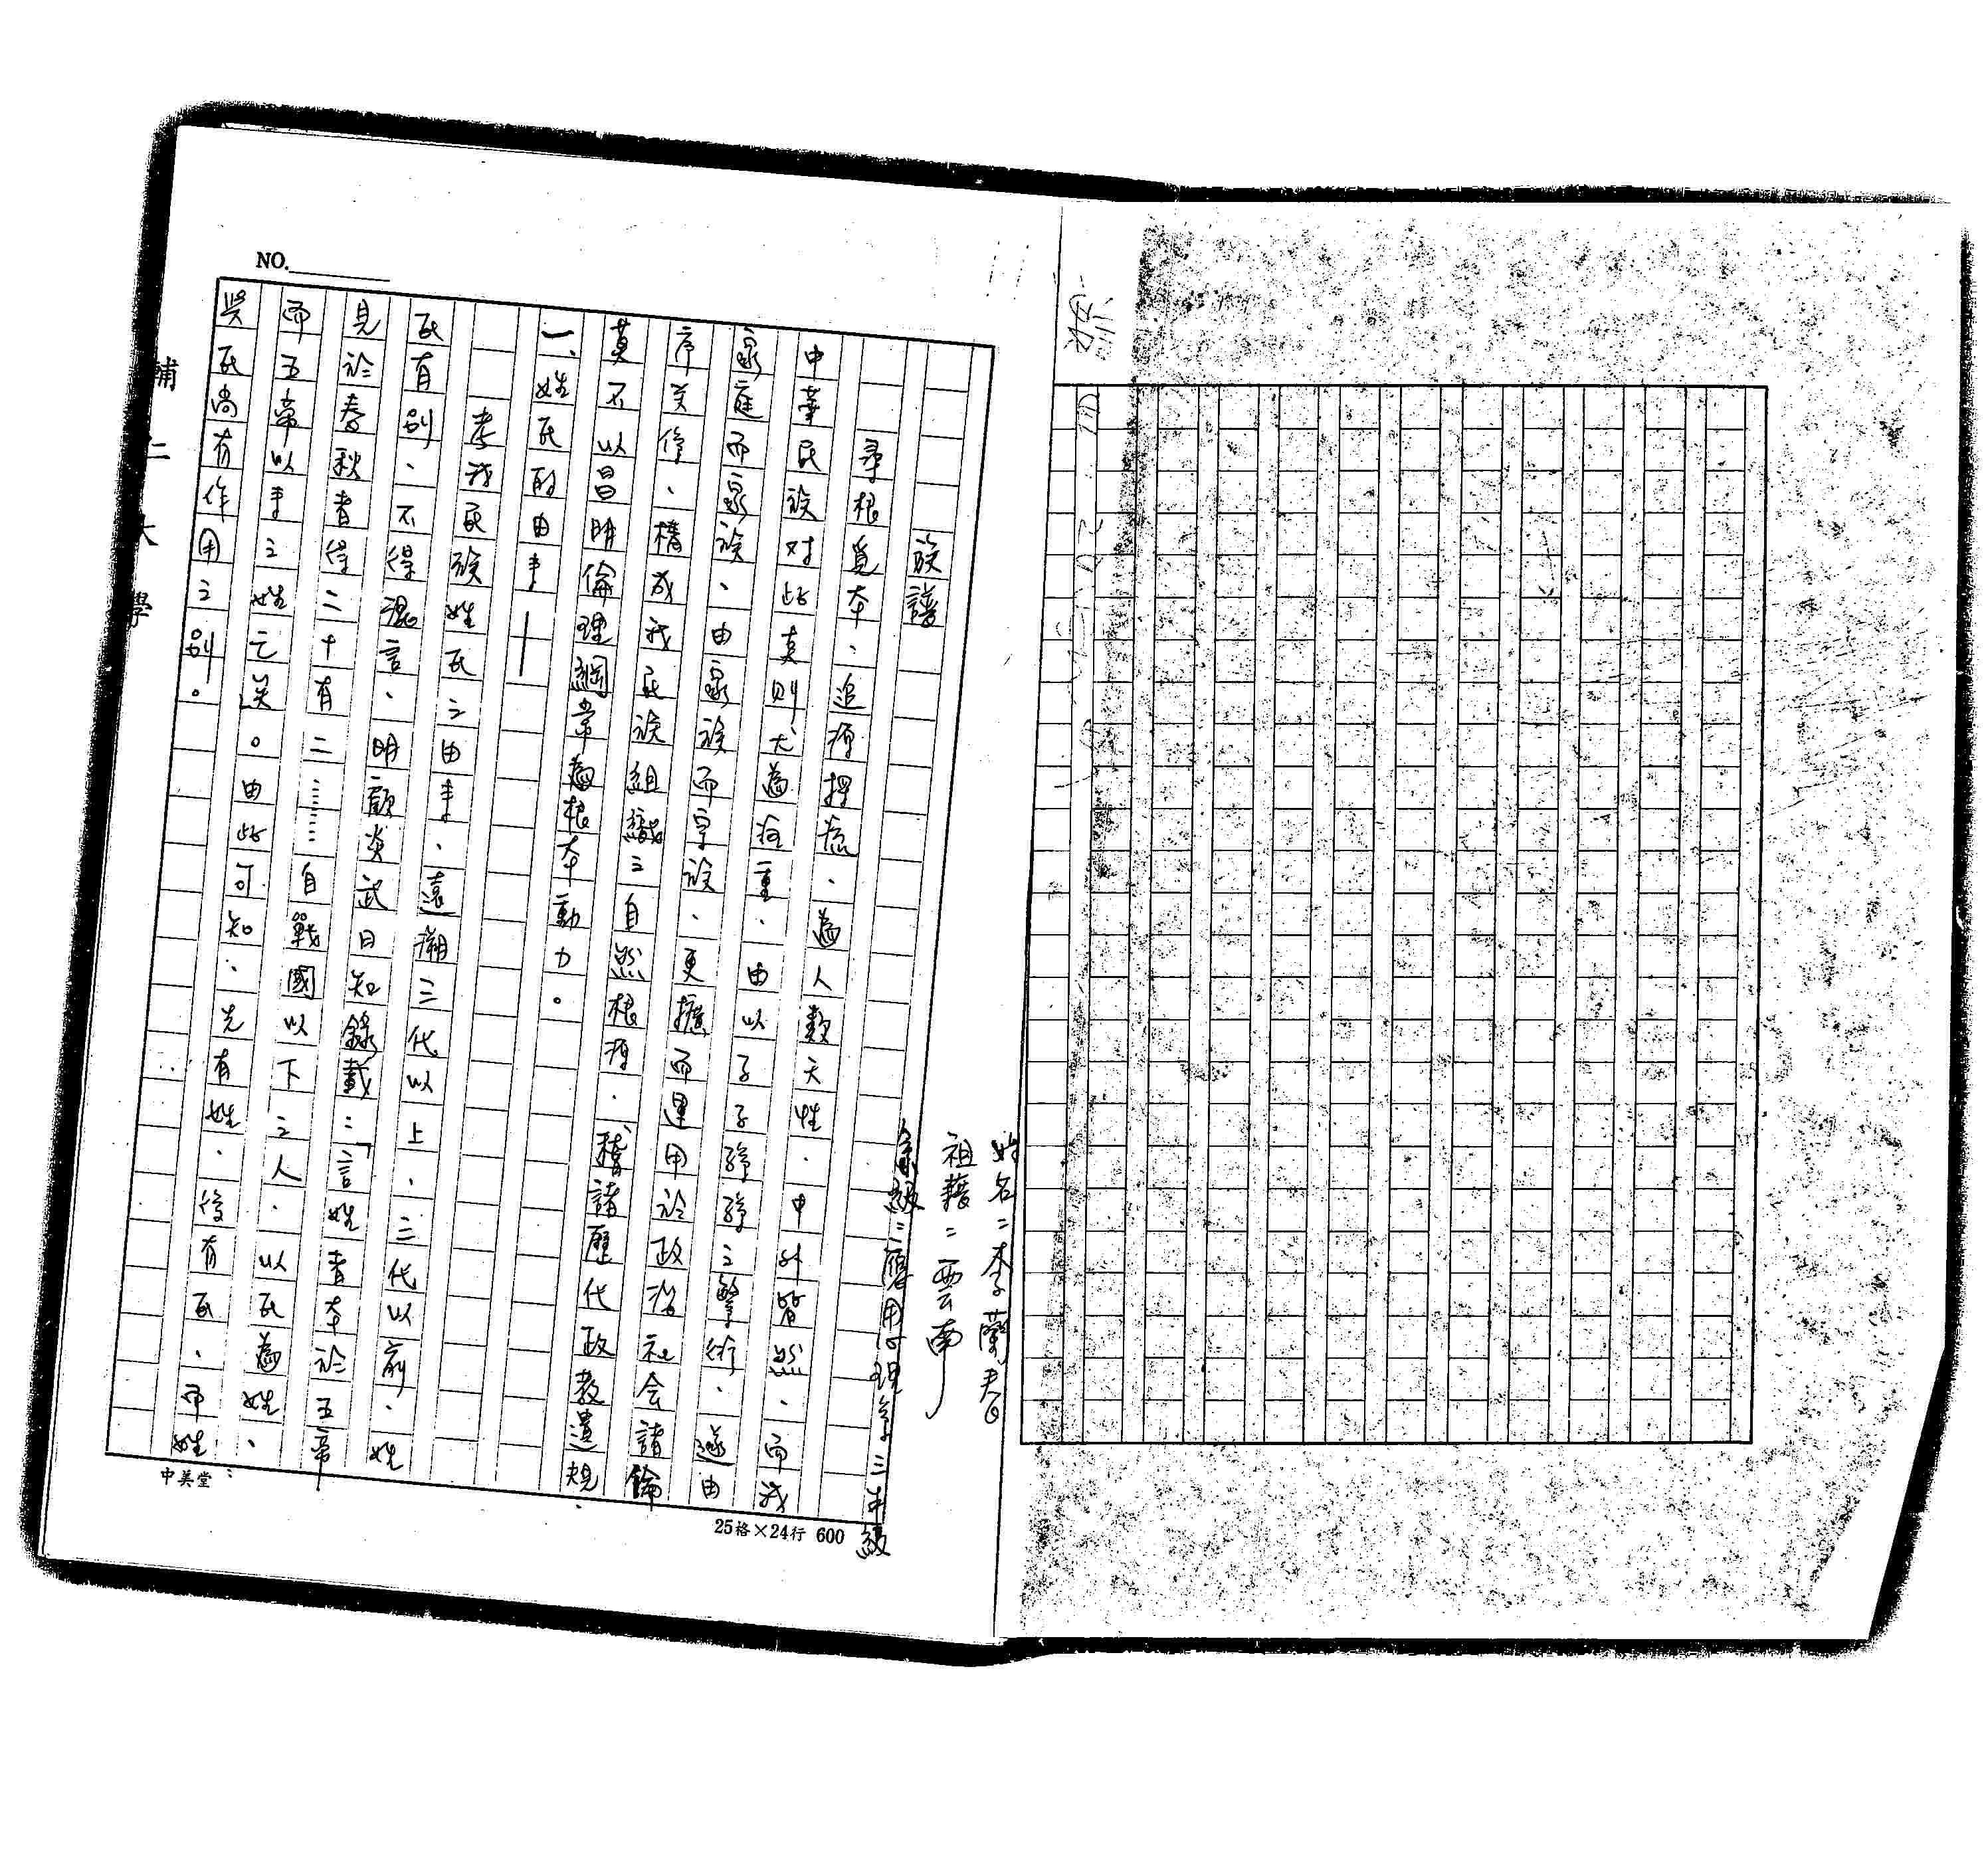 姓名：李蘭春
祖籍：雲南
系級：應用心理學三年級
族譜
尋根覓本、追源探流、為人類天性、中外皆然、而我
中華民族對此真則尤為注重、由以子子孫孫之繁衍、遂由
家庭而家族、由家族而宗族、更擴而運用於政治社会諸倫
序关係、構成我民族組織之自然根源、稽諸歷代政教遺規、
莫不以昌明倫理綱常為根本動力。
一、姓氏的由来——
考我民族姓氏之由来、遠溯三代以上、三代以前、姓
氏有別、不得混言、明顧炎武日知錄載：「言姓者本於五帝
見於春秋者得二十有二……自戰國以下之人、以氏為姓、
而五帝以来之姓亡矣。由此可知：先有姓、後有氏、而姓
與氏尚有作用之別。
NO.
輔仁大學
中美堂
25格×24行 600